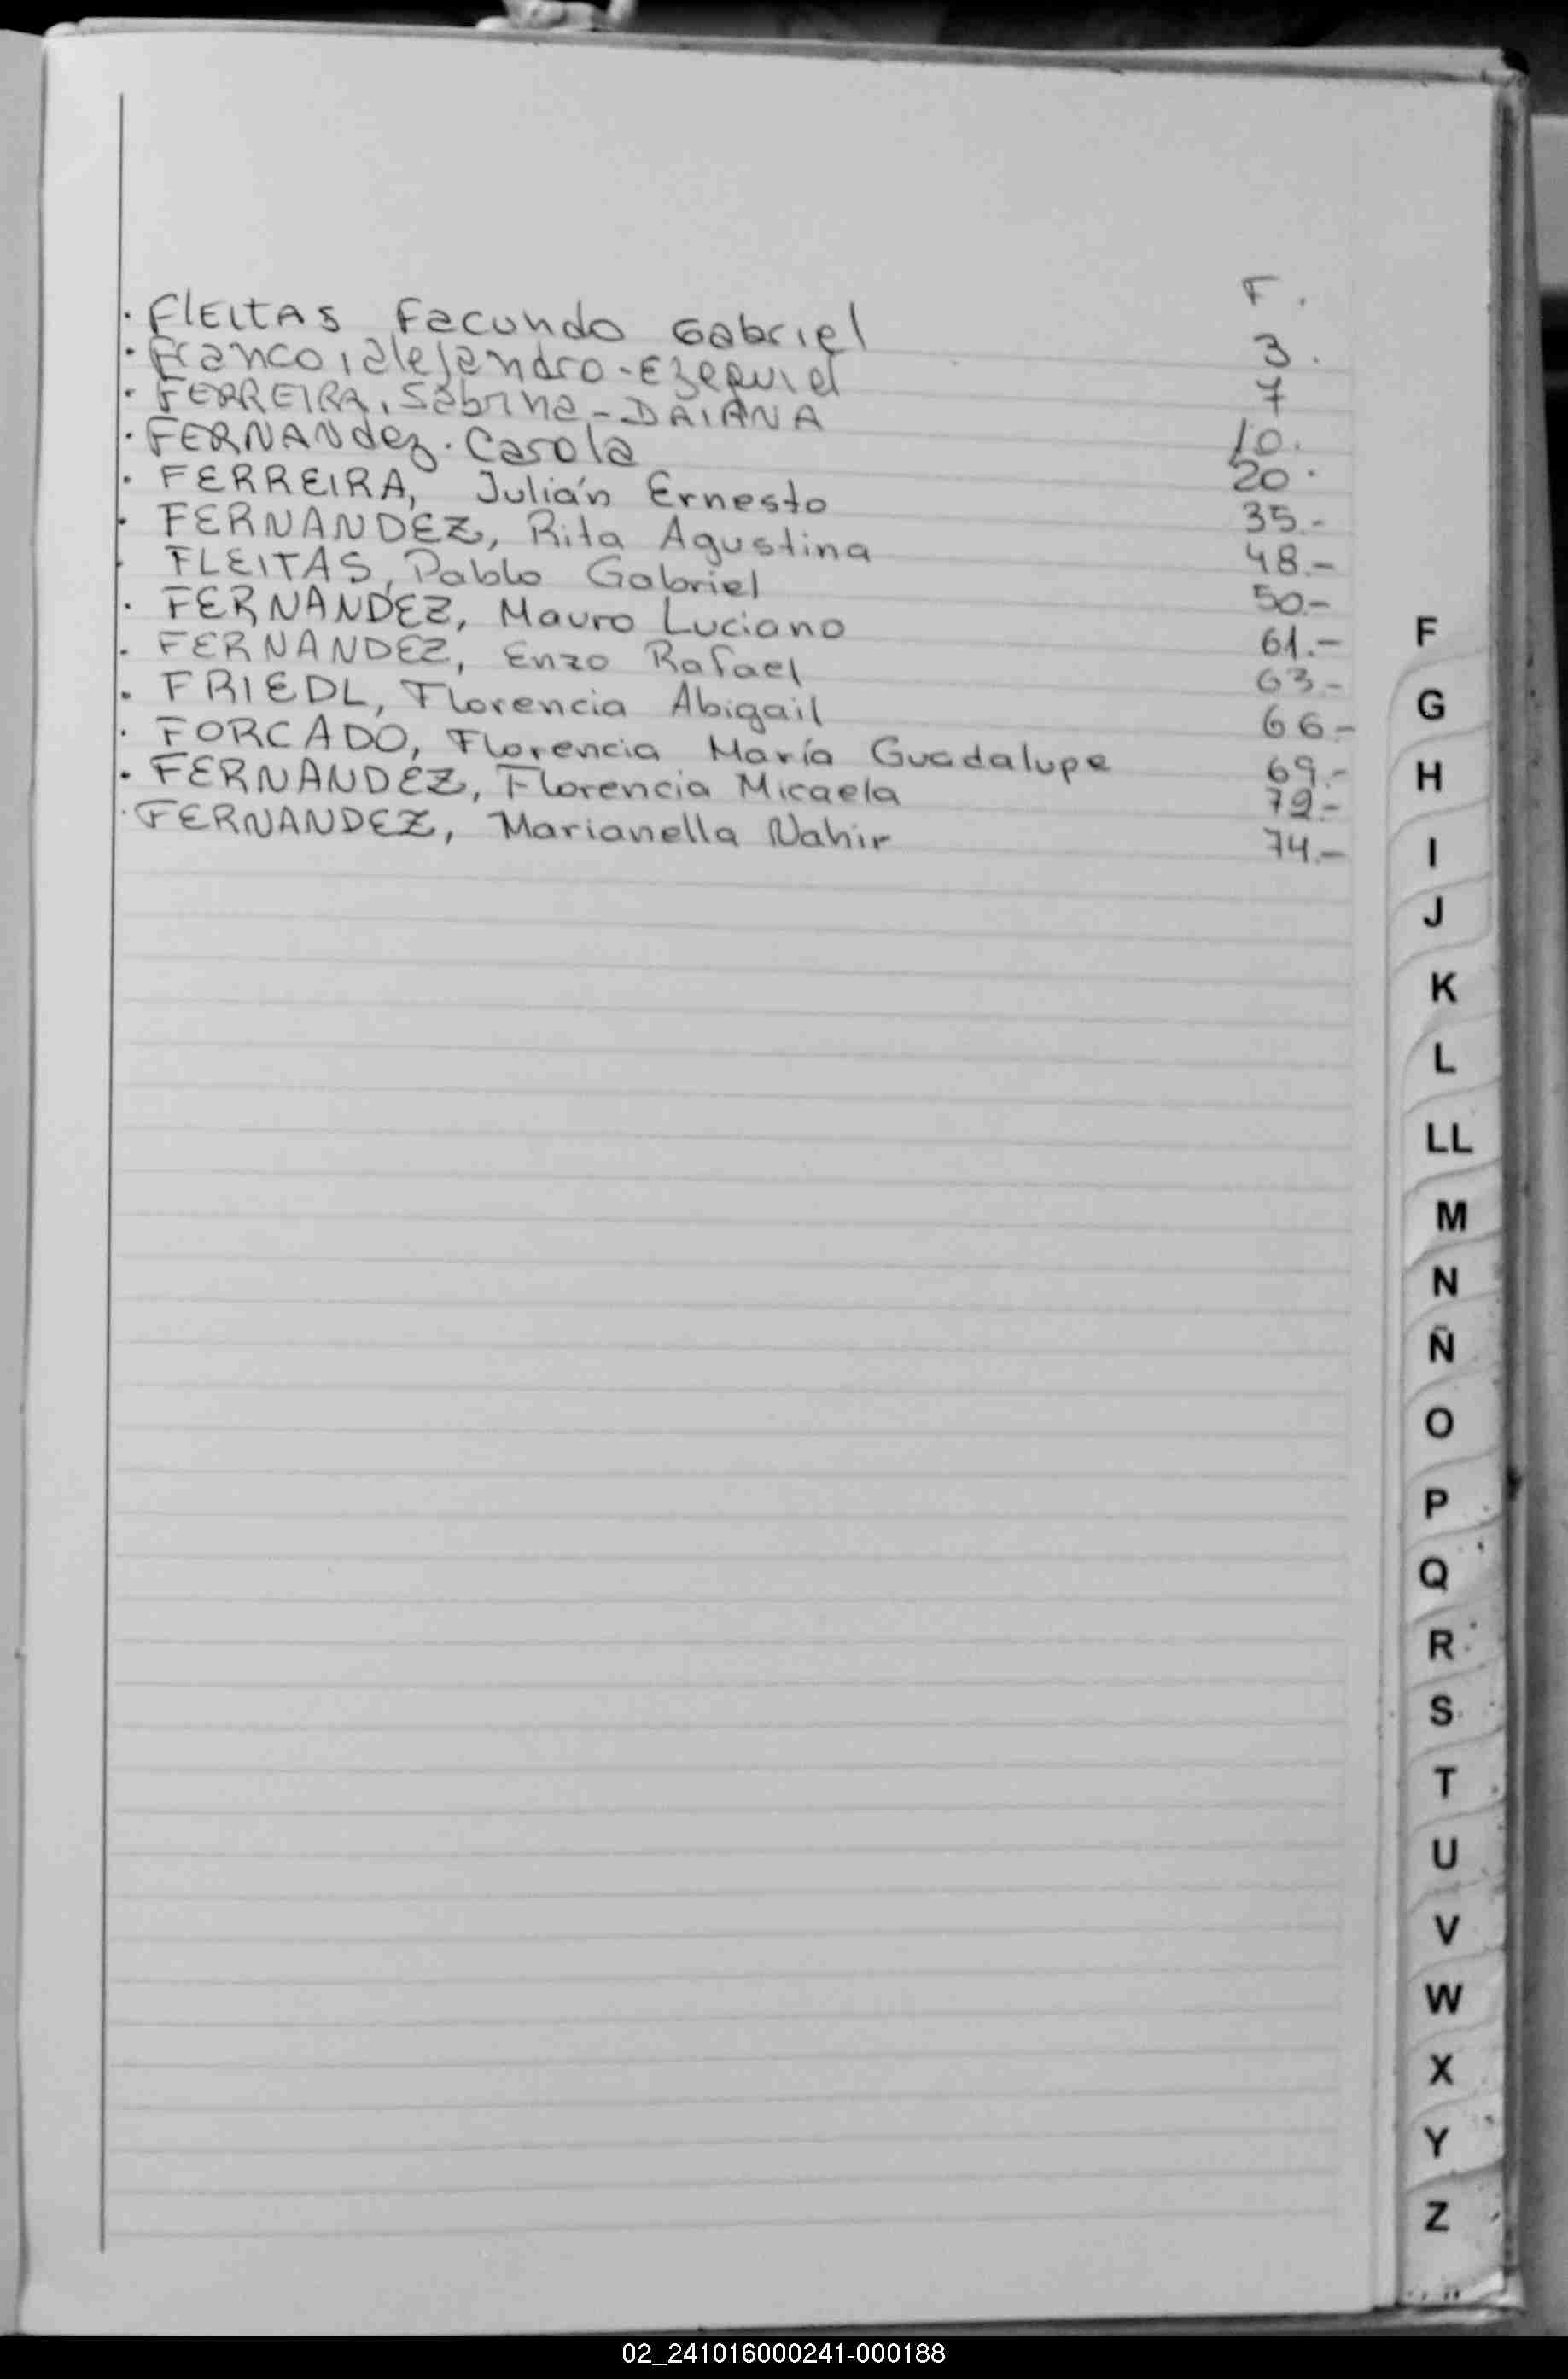 F.
· FlEItAS Facundo Gabriel 3.
· Franco, alejandro-Ezequiel 7
· FERREIRA, Sabrina-DAIANA 10.
· FERNANdez. Carola 20.
· FERREIRA, Julián Ernesto 35.-
· FERNANDEZ, Rita Agustina 48.-
· FLEITAS, Pablo Gabriel 50.-
· FERNANDEZ, Mauro Luciano 61.-
· FERNANDEZ, Enzo Rafael 63.-
· FRIEDL, Florencia Abigail 66.-
· FORCADO, Florencia María Guadalupe 69.-
· FERNANDEZ, Florencia Micaela 72.-
· FERNANDEZ, Marianella Nahir 74.-
F
G
H
I
J
K
L
LL
M
N
Ñ
O
P
Q
R
S
T
U
V
W
X
Y
Z
02_241016000241-000188